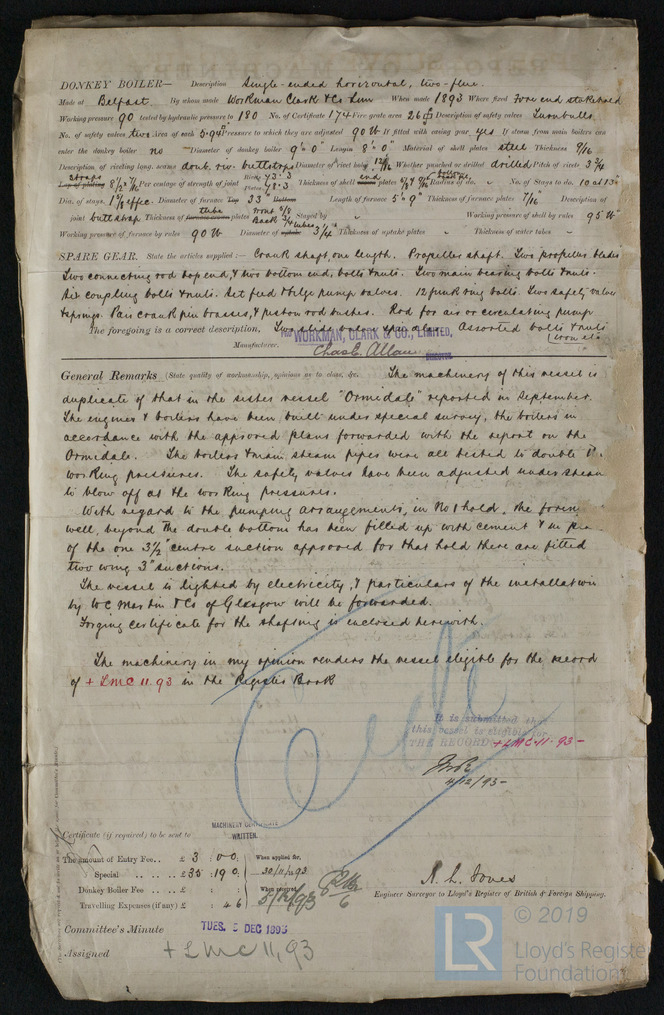 DONKEY BOILER— Description Single-ended horizontal, two-flue.
Made at Belfast. By whom made Workman Clark & Co Lim When made 1893 Where fixed Fore end stokehold
Working pressure 90 tested by hydraulic pressure to 180 No. of Certificate 174 Fire grate area 26 Description of safety valves Turnbulls
No. of safety valves two Area of each 5.94 Pressure to which they are adjusted 90 lb If fitted with easing gear yes If steam from main boilers can
enter the donkey boiler no Diameter of donkey boiler 9' 0" Length 8' 0" Material of shell plates steel Thickness 9/16
Description of riveting long. seams doub. riv. buttstraps Diameter of rivet holes 13/16 Whether punched or drilled drilled Pitch of rivets 3 3/4
straps
Lap of plating 8 1/2 x 7/16 Per centage of strength of joint Rivets 73.3 Plates 78.3 Thickness of shell end plates Radius of do. " No. of Stays to do. 10 at 13"
Dia. of stays. 1 7/8 effec. Diameter of furnace Top 33 Bottom Length of furnace 5' 9" Thickness of furnace plates 7/16 Description of
joint buttstrap Thickness of tube plates Front 5/8 Back 3/4 Stayed by " Working pressure of shell by rules 95 lb
Working pressure of furnace by rules 90 lb Diameter of tubes 3 1/4" Thickness of uptake plates " Thickness of water tubes "
SPARE GEAR. State the articles supplied:— Crank shaft, one length. Propeller shaft. Two propeller blades
Two connecting rod top end, & two bottom end, bolts & nuts. Two main bearing bolts & nuts.
Six coupling bolts & nuts. Set feed & bilge pump valves. 12 junk ring bolts. Two safety valve
springs. Pair crank pin brasses, & piston rod bushes. Rod for air or circulating pump
The foregoing is a correct description, Two slide valve spindles. Assorted bolts & nuts
iron etc.
FOR WORKMAN, CLARK & CO., LIMITED,
Manufacturer. Chas E. Allan
General Remarks (State quality of workmanship, opinions as to class, &c. The machinery of this vessel is
duplicate of that in the sister vessel "Ormidale" reported in September.
The engines & boilers have been built under special survey, the boilers in
accordance with the approved plans forwarded with the report on the
Ormidale. The boilers & main steam pipes were all tested to double the
working pressures. The safety valves have been adjusted under steam
to blow off at the working pressures.
With regard to the pumping arrangements, in No 1 hold, the
well, beyond the double bottom has been filled up with cement & in
of the one 3 1/2" centre suction approved for that hold there are fitted
two wing 3" suctions.
The vessel is lighted by electricity, & particulars of the installation
by W C Martin & Co of Glasgow will be forwarded.
Forging certificate for the shafting is enclosed herewith.
The machinery in my opinion renders the vessel eligible for the record
of + LMC 11.93 in the Register Book
It is submitted that
this vessel is eligible for
THE RECORD + LMC 11.93 -
4/12/93 -
MACHINERY CERTIFICATE
WRITTEN.
Certificate (if required) to be sent to
The amount of Entry Fee.. £ 3 : 0 0 When applied for,
Special .. .. .. £ 35 : 19 0 30/11/93
Donkey Boiler Fee .. .. £ : : When received,
Travelling Expenses (if any) £ : 4 6 8/12/93
Engineer Surveyor to Lloyd's Register of British & Foreign Shipping.
Committee's Minute TUES. 5 DEC 1893
Assigned + LMC 11,93
© 2019
LR
Lloyd's Register
Foundation